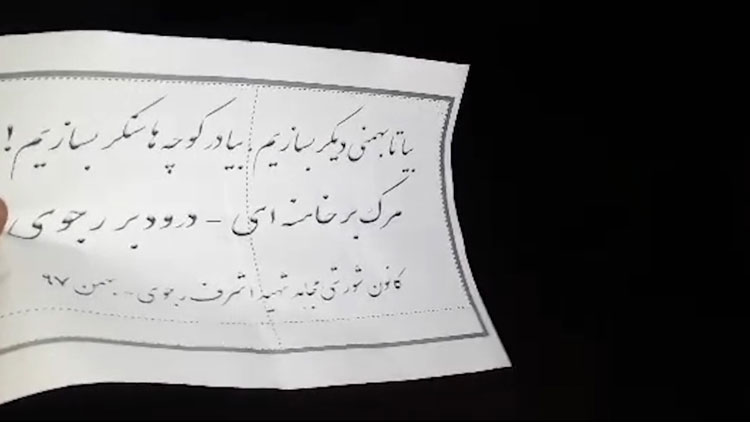 بیا تا بهمنی دیگر بسازیم، بیا در کوچه ها سنگر بسازیم!
مرگ بر خامنه ای - درود بر رجوی
کانون شورشی مجاهد شهید اشرف رجوی - بهمن ۹۷